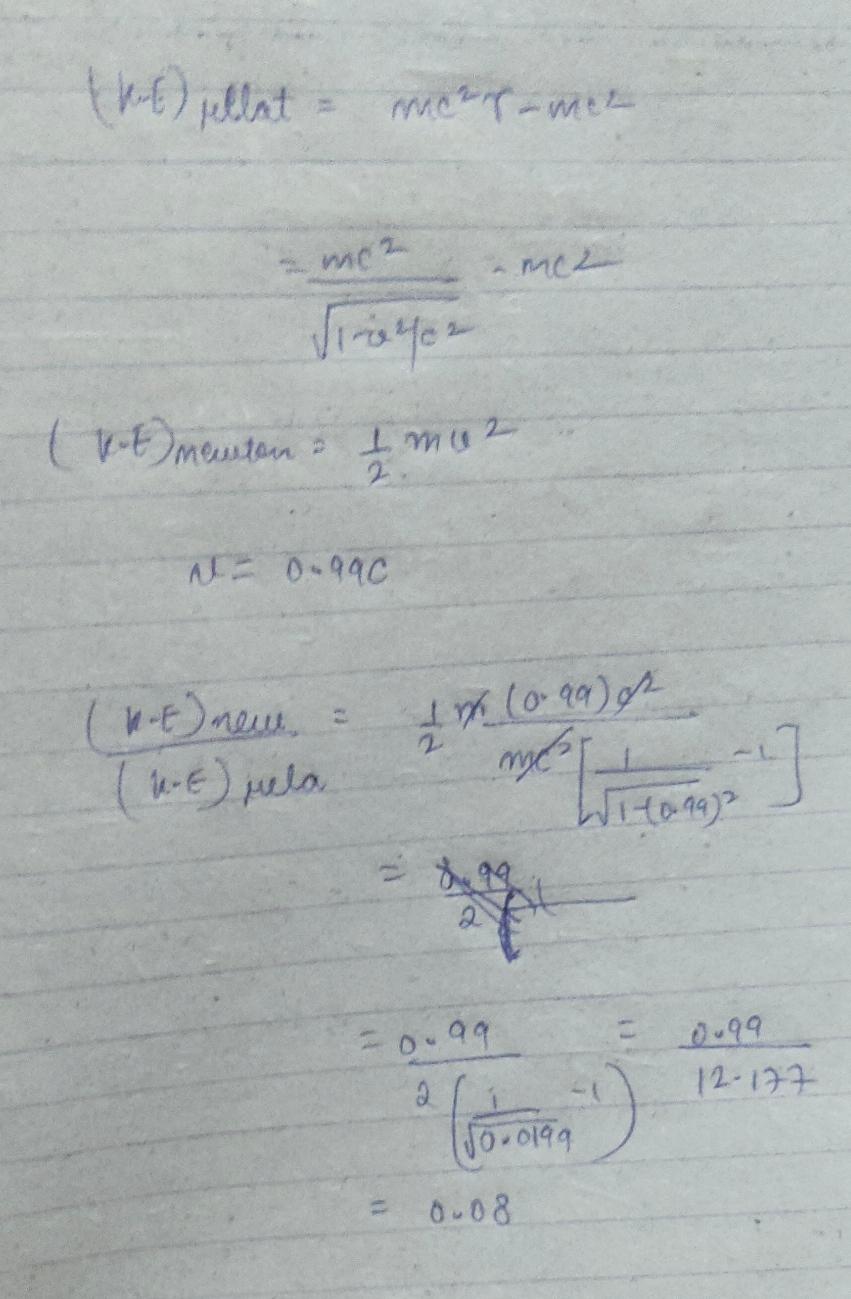 (K.E) rellat = mc²γ - mc²
= mc² / √1-v²/c² - mc2
(K.E) newton = 1/2 mv²
v = 0.99C
(K.E) new / (K.E) rela = 1/2 m (0.99) c² / mc² [ 1 / √1-(0.99)² -1 ]
= 0.99 / 2
= 0.99 / 2 ( 1 / √0.0199 -1 ) = 0.99 / 12.177
= 0.08